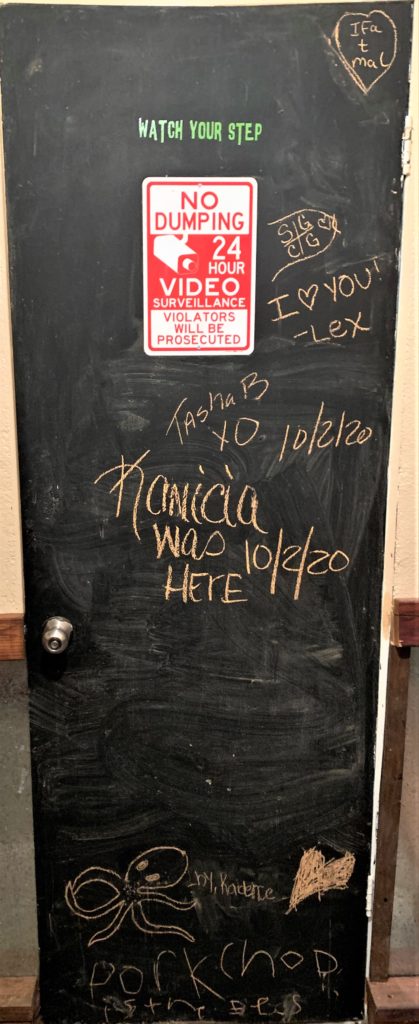 IFa
t
mal
WATCH YOUR STEP
NO
DUMPING
24
HOUR
VIDEO
SURVEILLANCE
VIOLATORS
WILL BE
PROSECUTED
S|G
C|G
I ♡ YOU!
-Lex
Tasha B
XO 10/2/20
Kanicia
was
HERE 10/2/20
by, Kadence
porkchop
is the